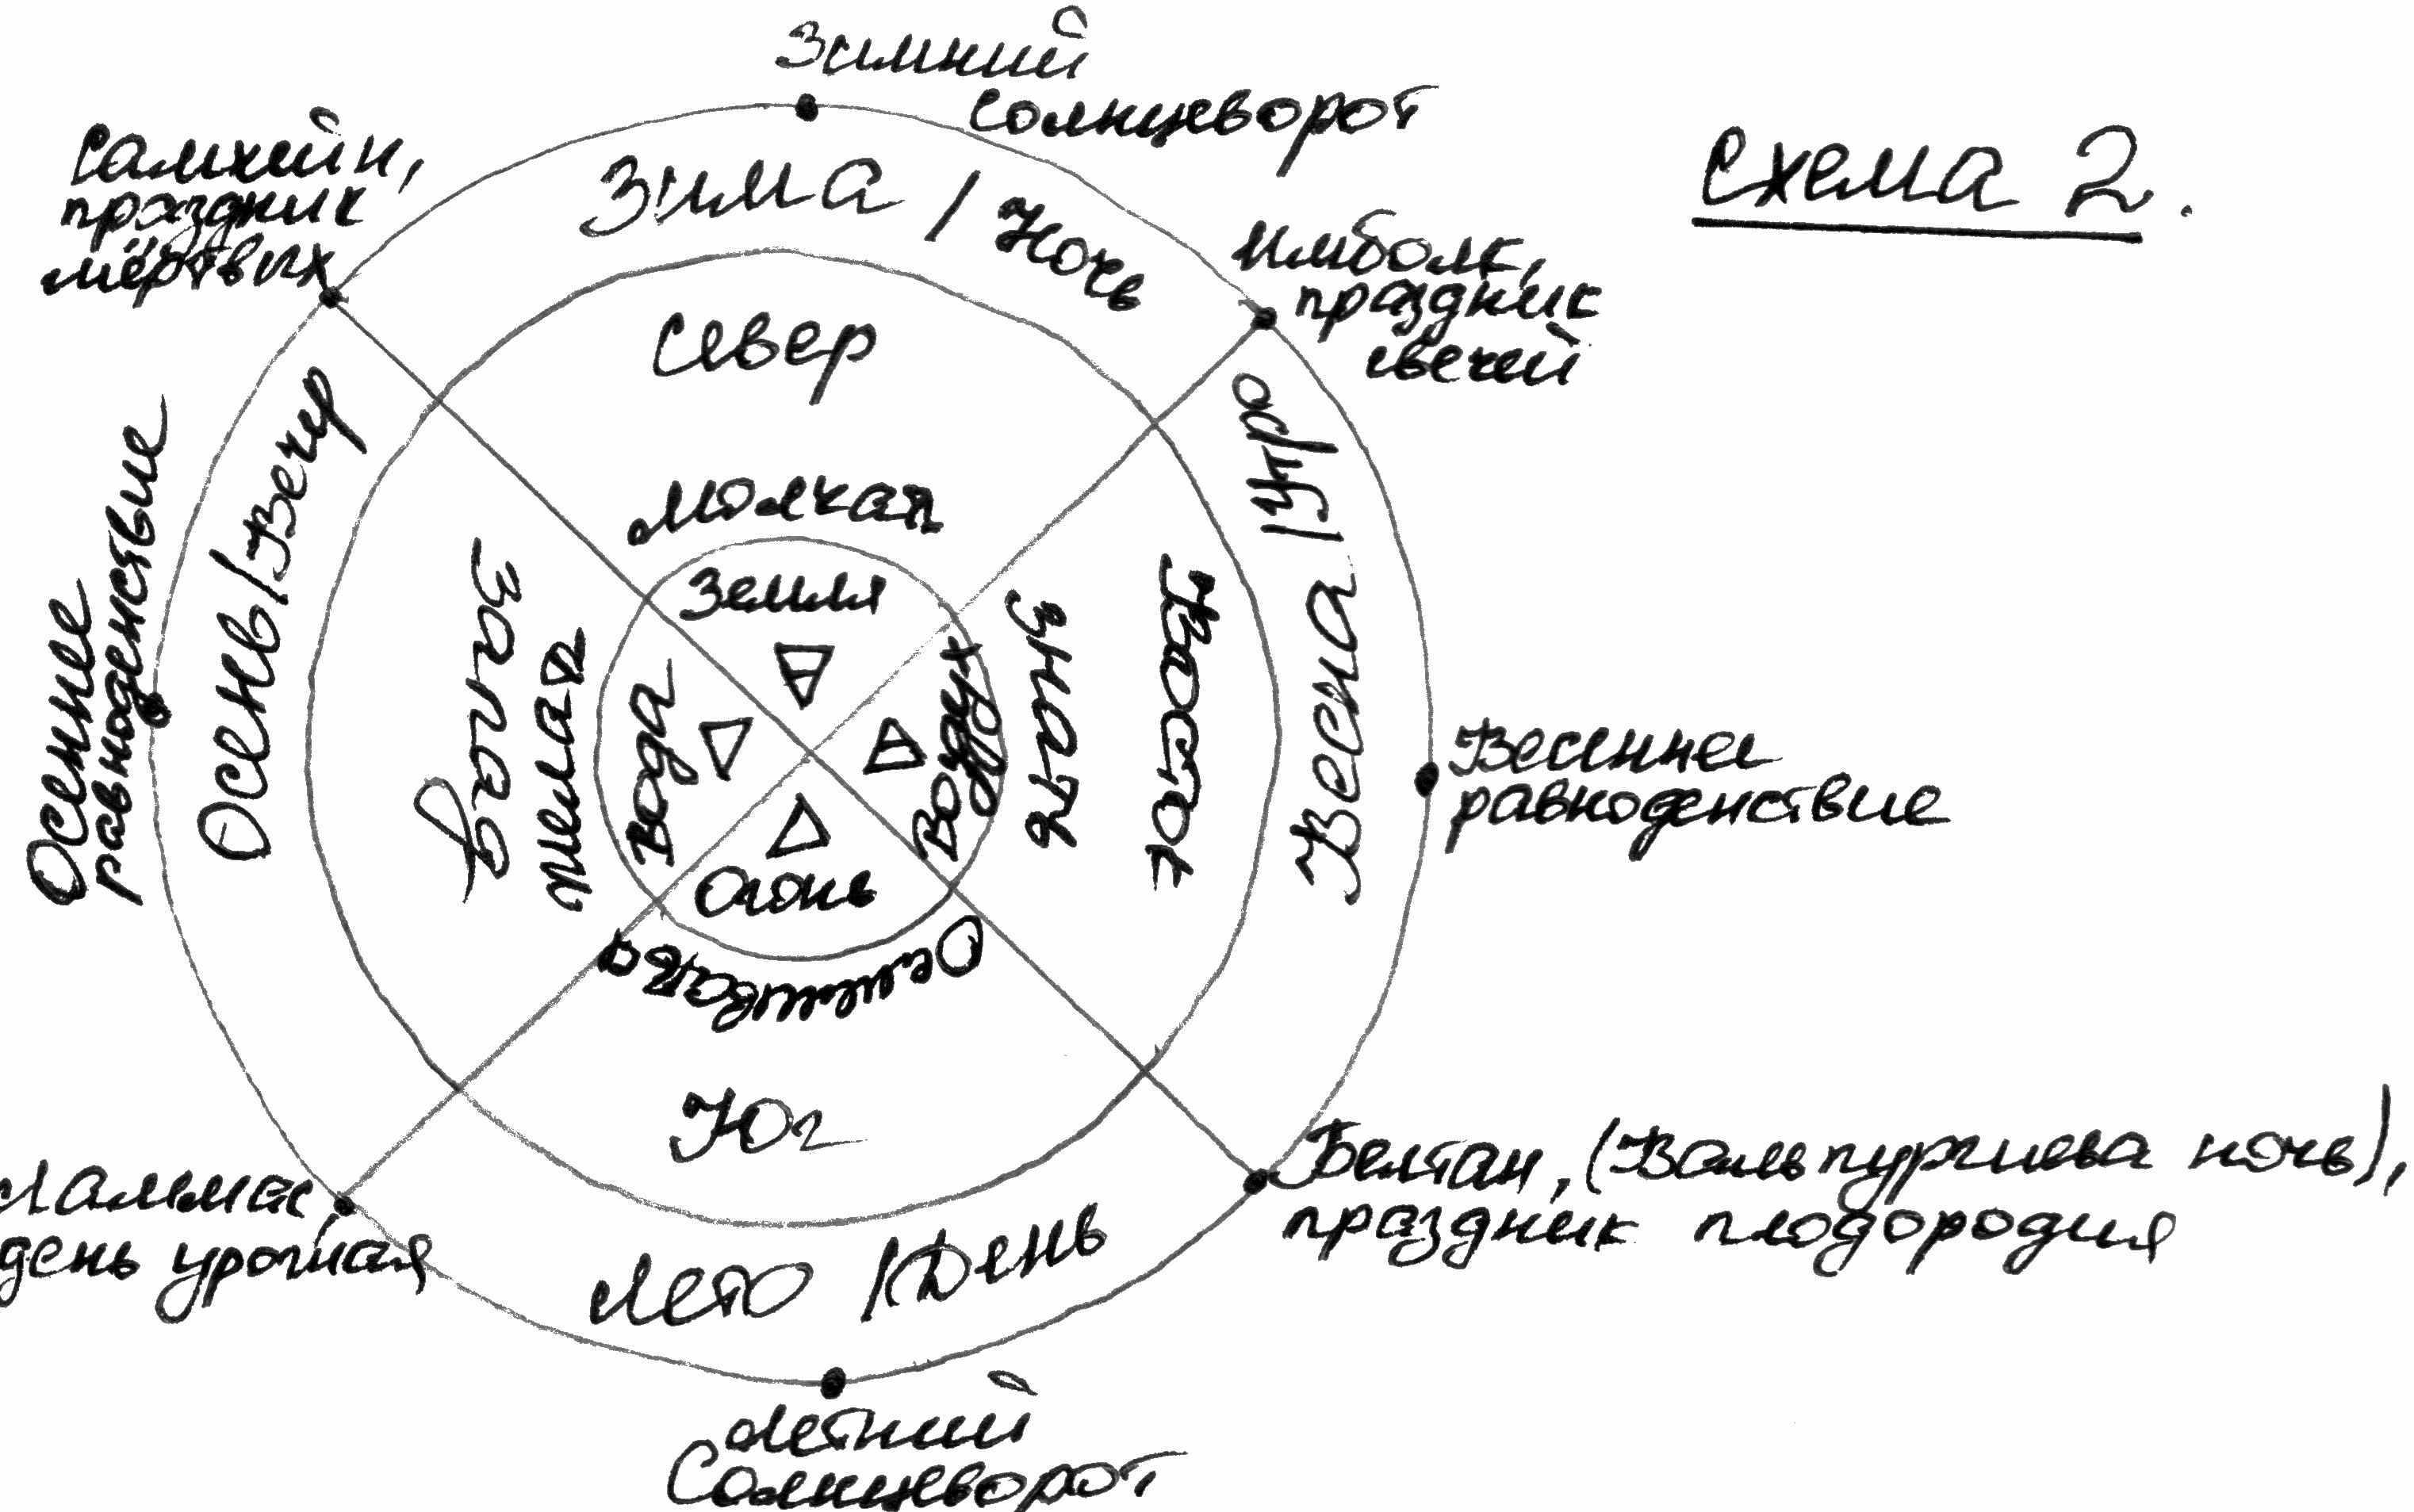 Зимний
солнцеворот
схема 2.
Самхейн,
праздник
мёртвых
Зима / Ночь
Имболк,
праздник
свечей
Север
Осень / Вечер
Весна / Утро
Осеннее
равноденствие
молчая
Запад
желая
Земля
Вода
Воздух
Огонь
Знать
Восток
Весеннее
равноденствие
Юг
Лето / День
Ламмас,
день урожая
Белтан, (Вальпургиева ночь),
праздник плодородия
Летний
Солнцеворот